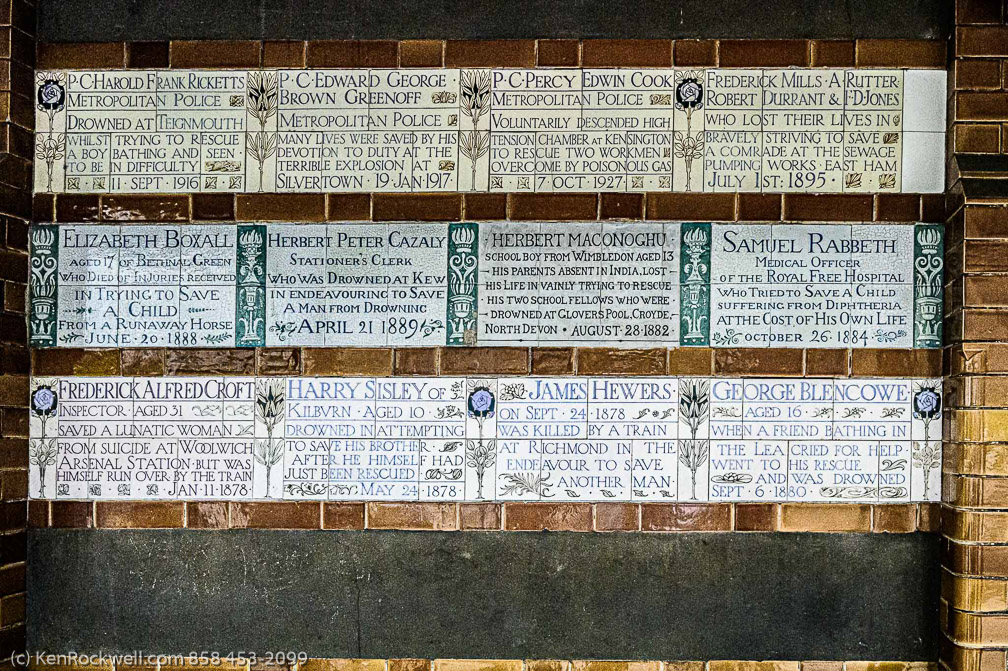 P·C·HAROLD FRANK RICKETTS
METROPOLITAN POLICE
DROWNED AT TEIGNMOUTH
WHILST TRYING TO RESCUE
A BOY BATHING AND SEEN
TO BE IN DIFFICULTY
11·SEPT·1916
P·C·EDWARD GEORGE
BROWN GREENOFF
METROPOLITAN POLICE
MANY LIVES WERE SAVED BY HIS
DEVOTION TO DUTY AT THE
TERRIBLE EXPLOSION AT
SILVERTOWN·19·JAN·1917·
P·C·PERCY EDWIN COOK
METROPOLITAN POLICE
VOLUNTARILY DESCENDED HIGH
TENSION CHAMBER AT KENSINGTON
TO RESCUE TWO WORKMEN
OVERCOME BY POISONOUS GAS
7·OCT·1927
FREDERICK MILLS·A·RUTTER
ROBERT DURRANT & F·D·JONES
WHO LOST THEIR LIVES IN
BRAVELY STRIVING TO SAVE
A COMRADE AT THE SEWAGE
PUMPING WORKS·EAST HAM
JULY 1ST·1895
ELIZABETH BOXALL
AGED 17 OF BETHNAL GREEN
WHO DIED OF INJURIES RECEIVED
IN TRYING TO SAVE
A CHILD
FROM A RUNAWAY HORSE
JUNE·20·1888
HERBERT PETER CAZALY
STATIONER'S CLERK
WHO WAS DROWNED AT KEW
IN ENDEAVOURING TO SAVE
A MAN FROM DROWNING
APRIL 21 1889
HERBERT MACONOGHU
SCHOOL BOY FROM WIMBLEDON AGED 13
HIS PARENTS ABSENT IN INDIA, LOST
HIS LIFE IN VAINLY TRYING TO RESCUE
HIS TWO SCHOOL FELLOWS WHO WERE
DROWNED AT GLOVERS POOL, CROYDE,
NORTH DEVON · AUGUST·28·1882
SAMUEL RABBETH
MEDICAL OFFICER
OF THE ROYAL FREE HOSPITAL
WHO TRIED TO SAVE A CHILD
SUFFERING FROM DIPHTHERIA
AT THE COST OF HIS OWN LIFE
OCTOBER 26·1884
FREDERICK ALFRED CROFT
INSPECTOR·AGED 31
SAVED A LUNATIC WOMAN
FROM SUICIDE AT WOOLWICH
ARSENAL STATION·BUT WAS
HIMSELF RUN OVER BY THE TRAIN
JAN·11·1878
HARRY SISLEY OF
KILBVRN·AGED 10
DROWNED IN ATTEMPTING
TO SAVE HIS BROTHER
AFTER HE HIMSELF HAD
JUST BEEN RESCUED
MAY 24·1878
JAMES HEWERS
ON SEPT·24·1878
WAS KILLED BY A TRAIN
AT RICHMOND IN THE
ENDEAVOUR TO SAVE
ANOTHER MAN
GEORGE BLENCOWE
AGED 16
WHEN A FRIEND BATHING IN
THE LEA CRIED FOR HELP
WENT TO HIS RESCUE
AND WAS DROWNED
SEPT·6·1880
(c) KenRockwell.com 858-453-2099